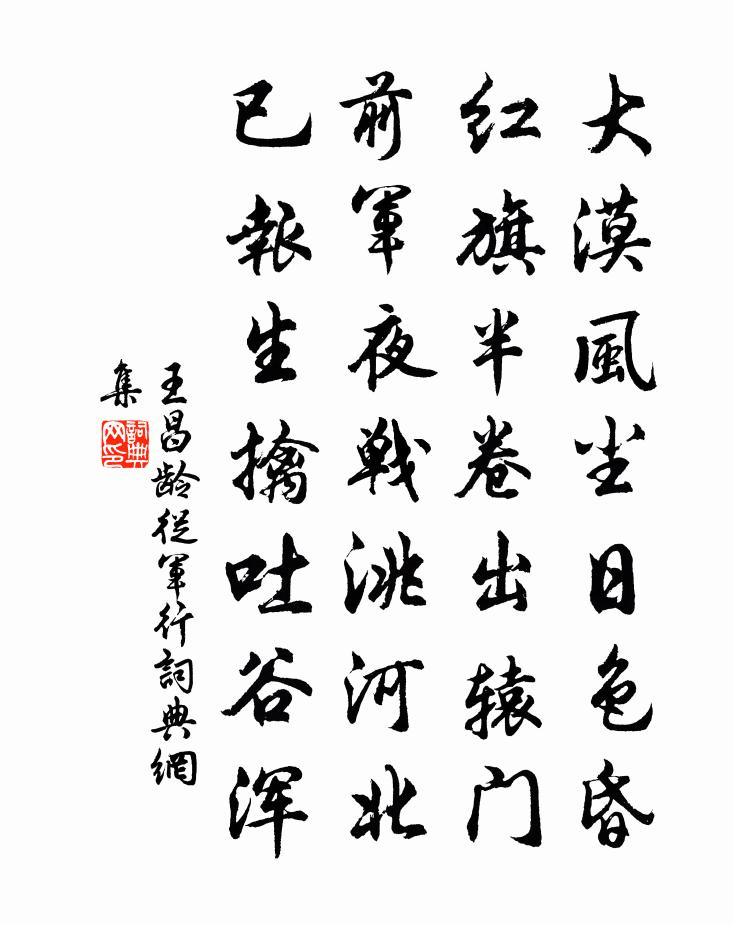 大漠風尘日色昏
红旗半卷出辕门
前軍夜戰洮河北
已報生擒吐谷浑
王昌龄從軍行詞典網
集
詞典
网印